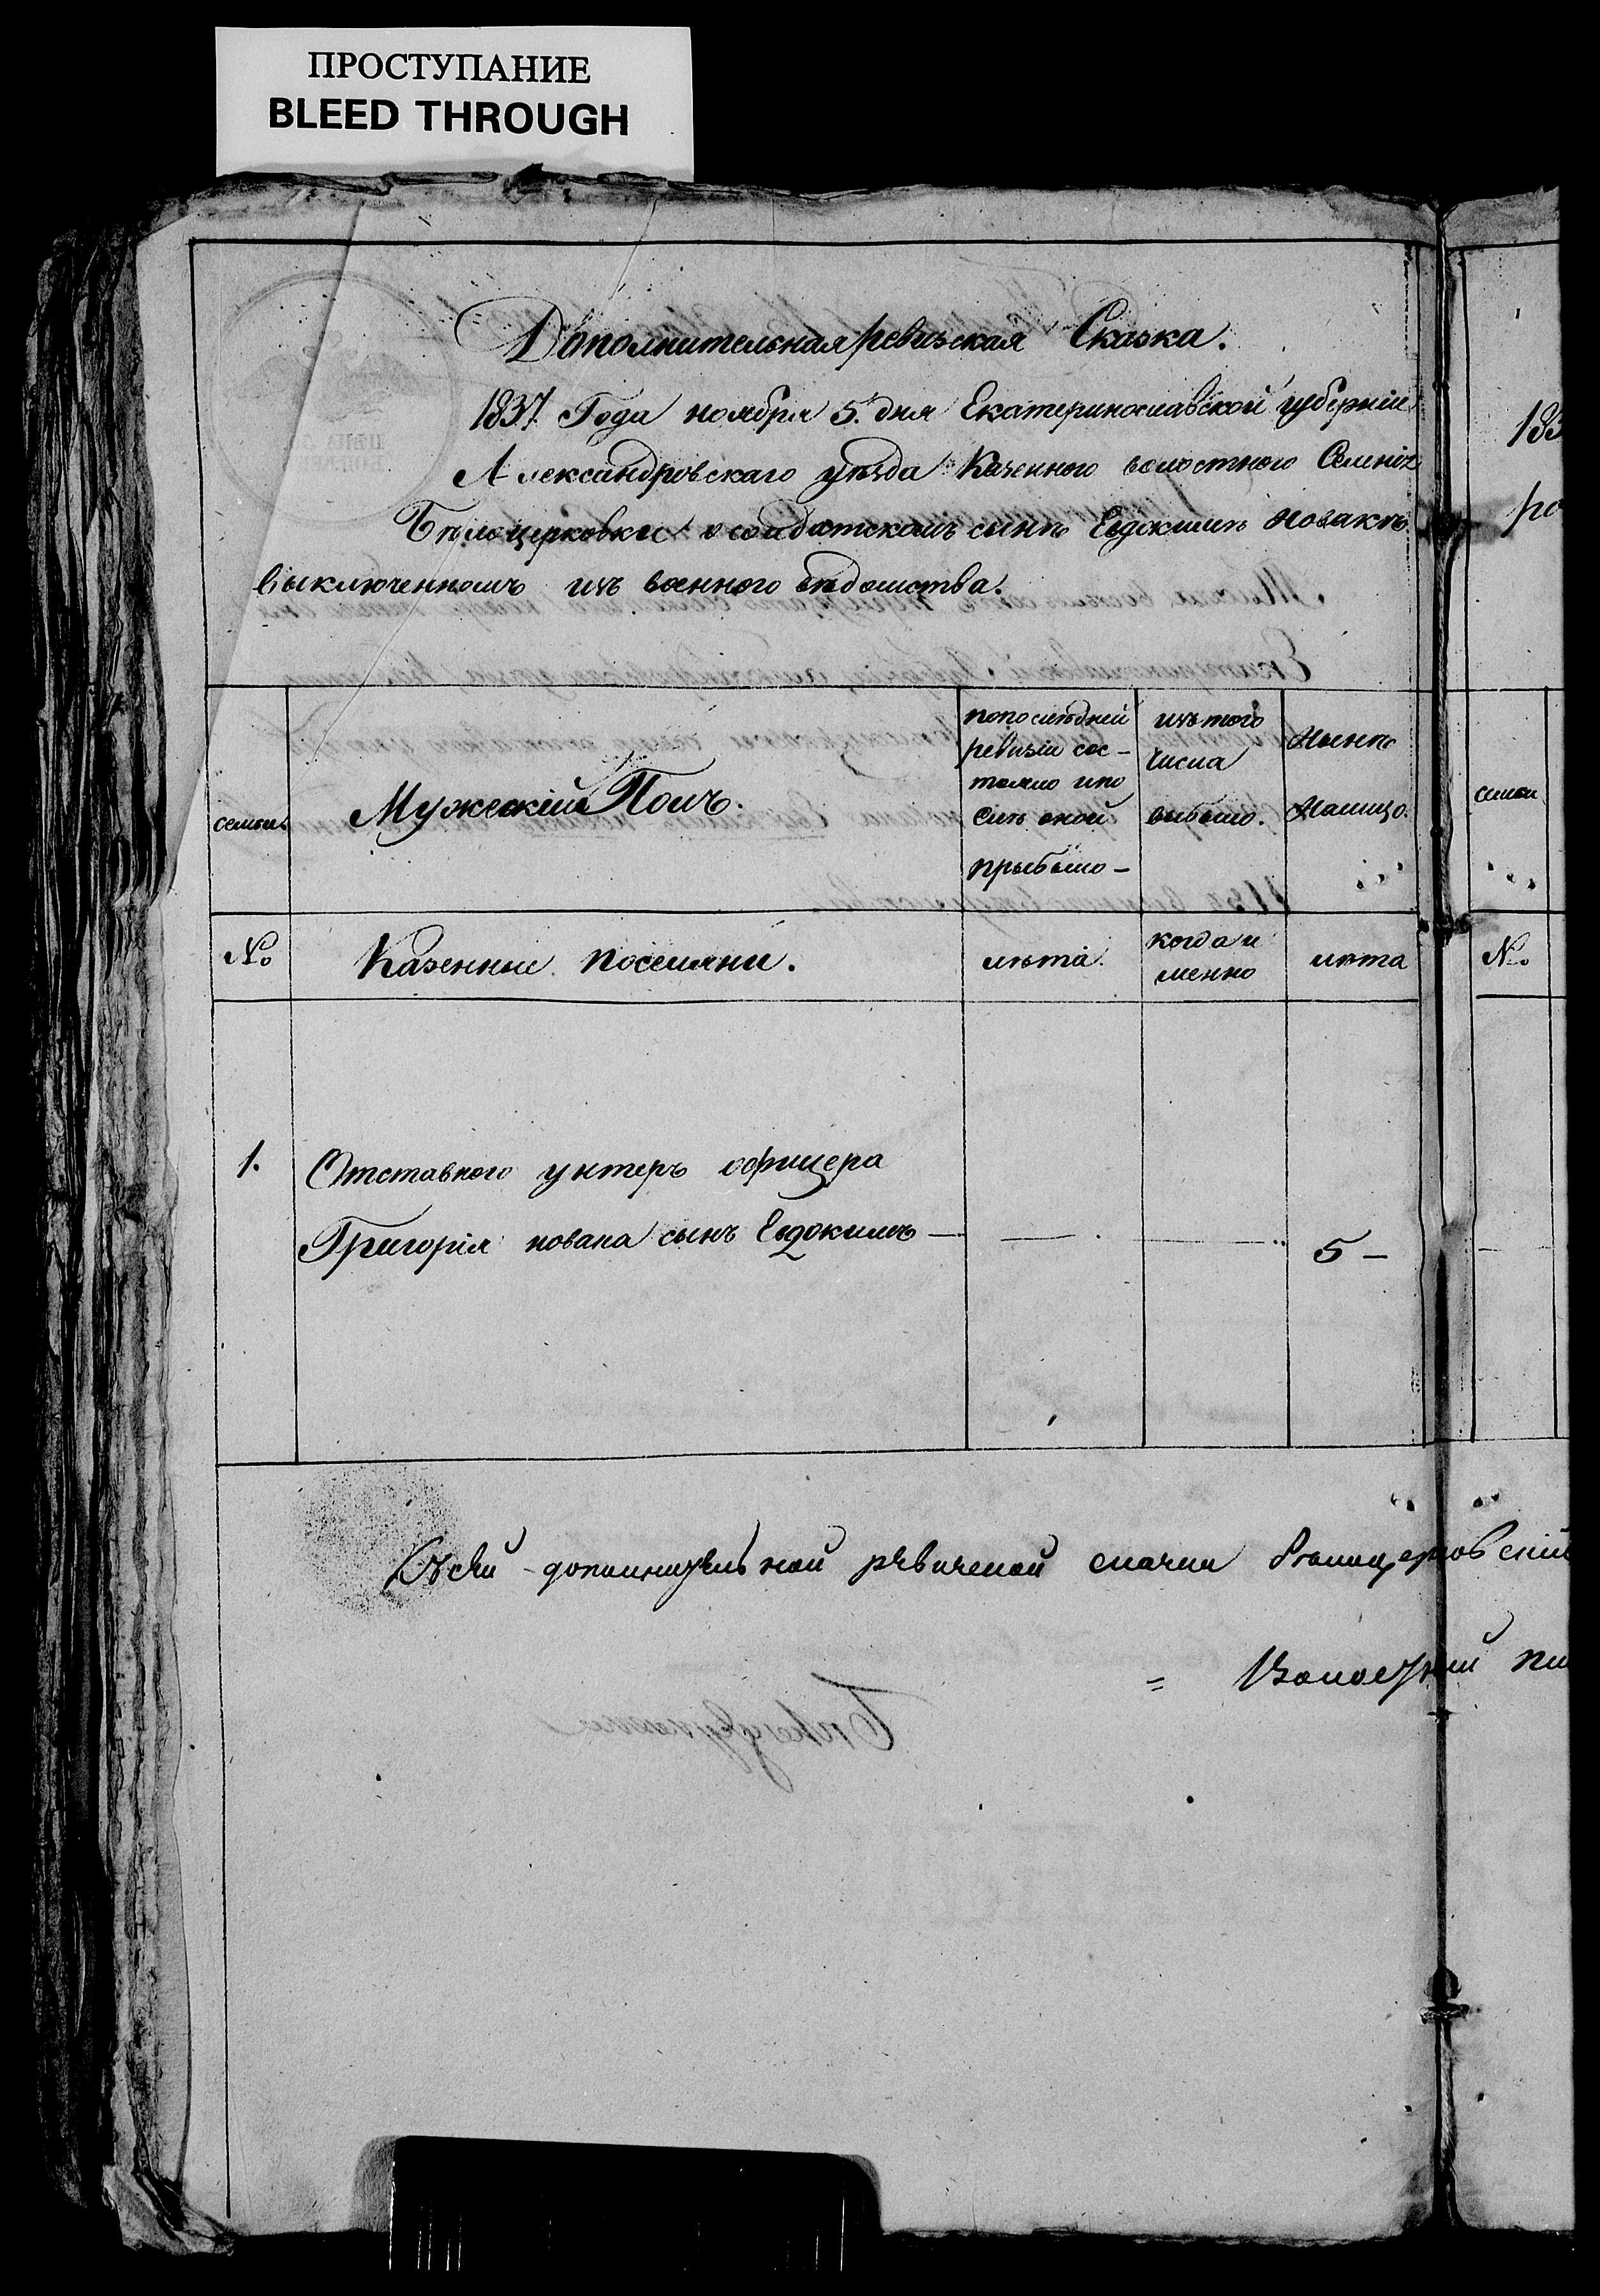 ПРОСТУПАНИЕ
BLEED THROUGH
Дополнительная ревизская Сказка.
1837 Года ноября 5. дня Екатеринославской губерніи
Александровскаго уѣзда Казенного волостного Селенія
Бѣлоцерковки о солдатскомъ сынѣ Евдокимѣ Новакѣ
выключенномъ изъ военного вѣдомства.
семьи.
Мужескій Полъ.
попослѣдней
ревизіи сос-
тояло ипо
слѣ оной
прыбыло -
изъ того
числа
выбыло.
Нынѣ
Налицо.
семьи
№
Казенные поселяне.
лѣта.
когда и
менно
лѣта
№
1.
Отставного унтеръ офицера
Григорія новака сынъ Евдокимъ —
5 —
183
ро
Къ сей дополнительной ревизской сказки
Волостный пи